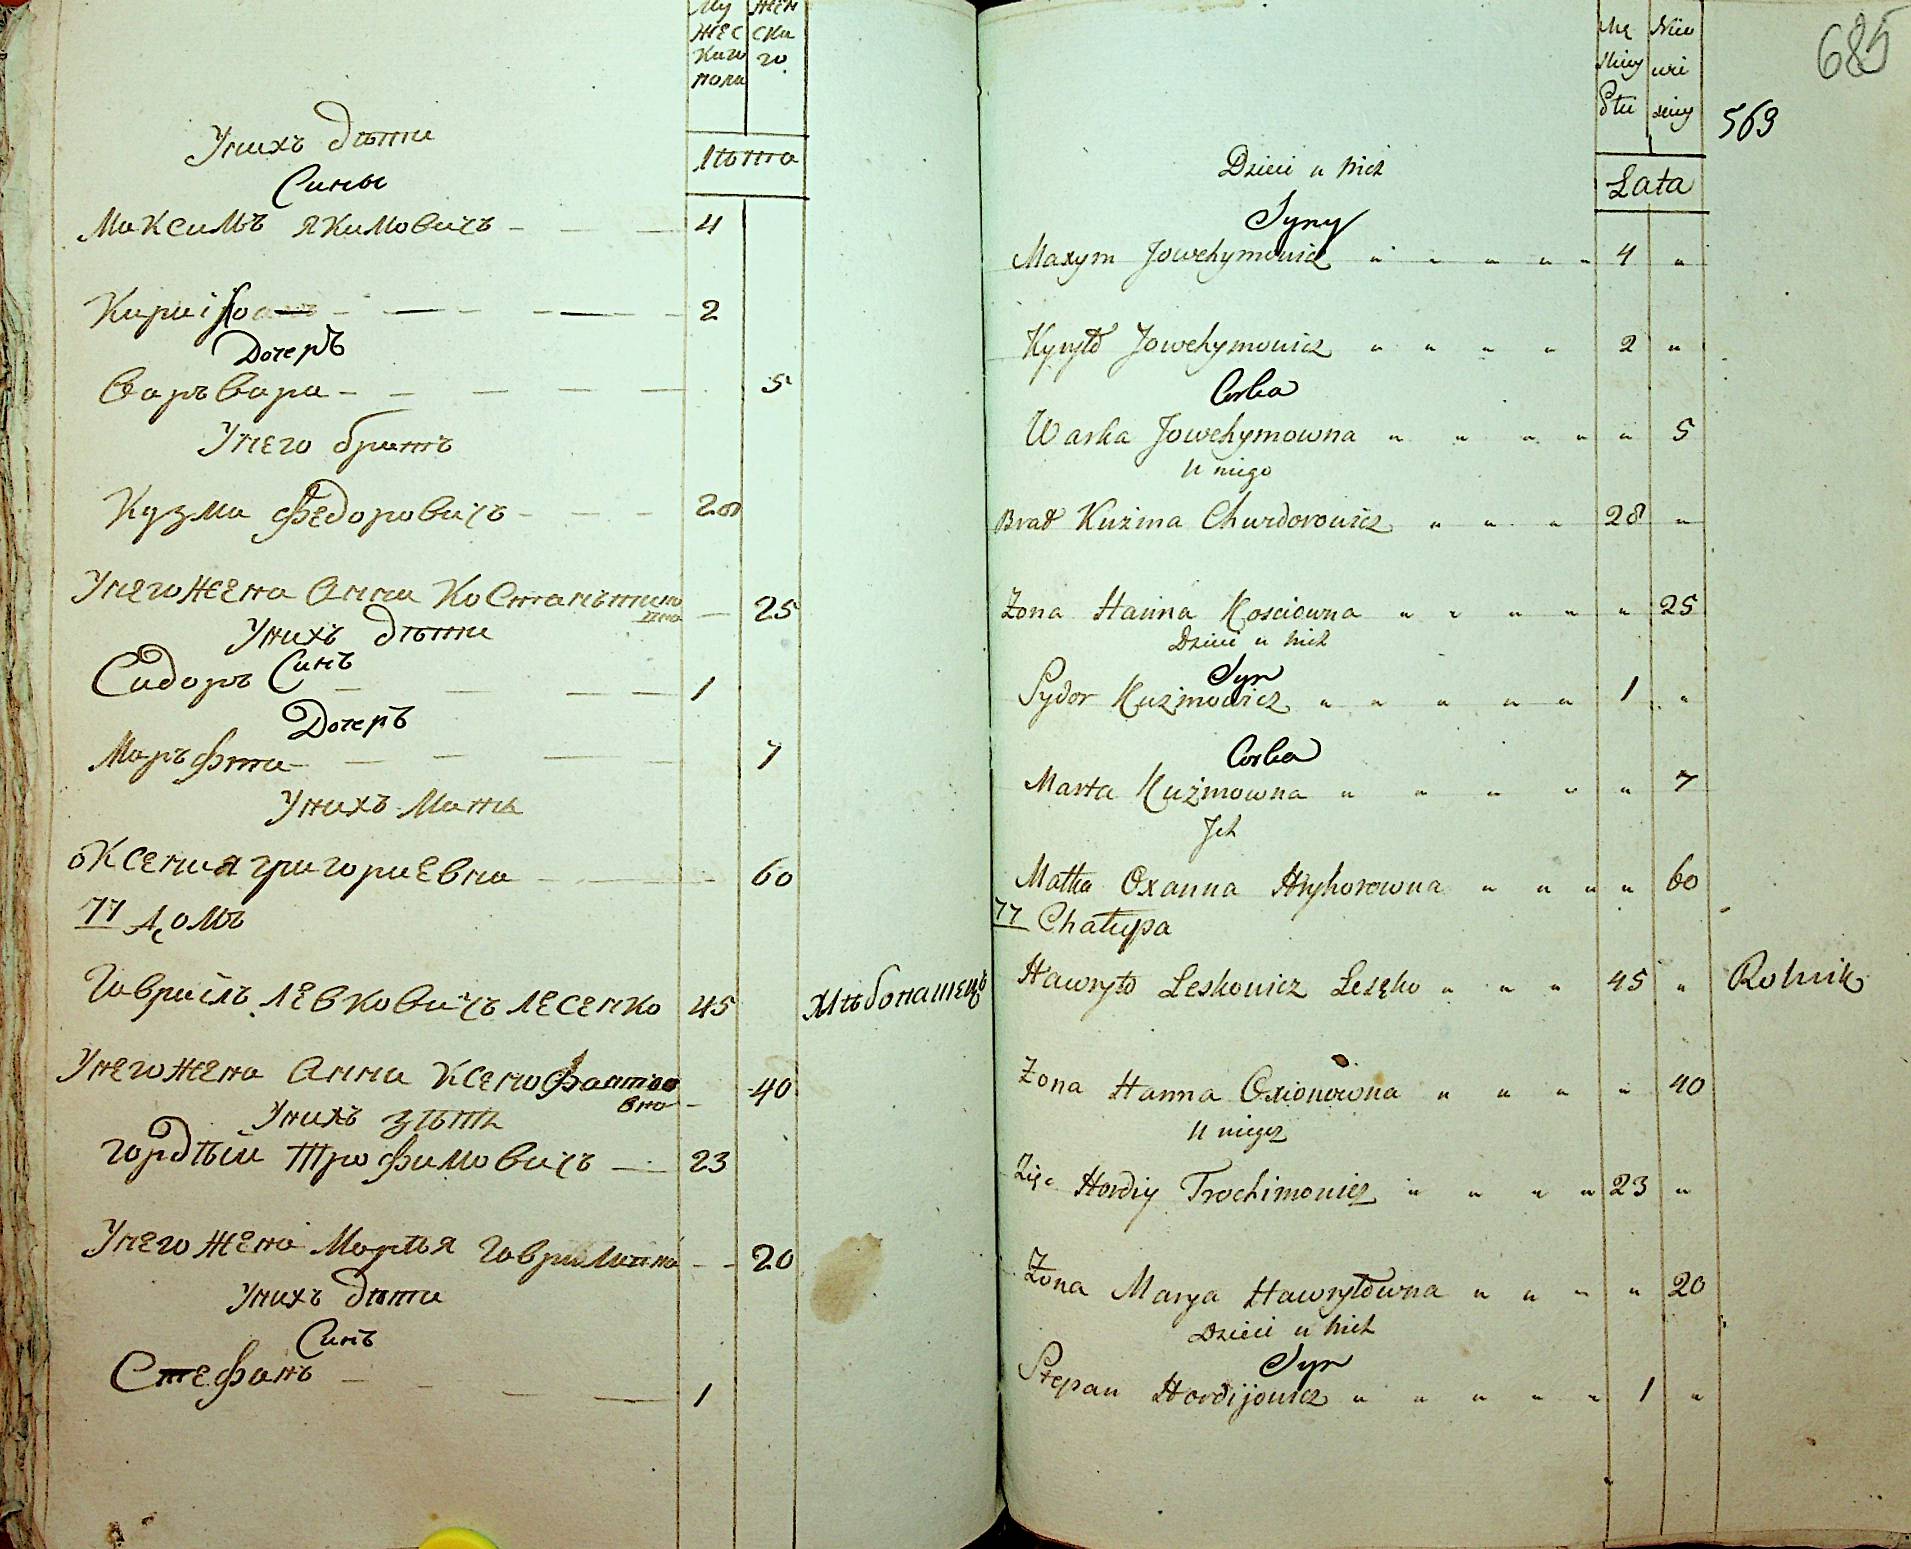 Му
жес
каго
пола
жен
ска
го
Лѣта
Унихъ дѣти
Сины
Максимъ якимовичъ 4
Кирило 2
Дочеръ
Варъвара 5
Унего братъ
Кузма федоровичъ 28
Унего жена Анна Костанътино
вна 25
Унихъ дѣти
Синъ
Сидоръ 1
Дочеръ
Маръфта 7
Унихъ Мать
оксения григориевна 60
77 домъ
Гаврыилъ левковичъ лесенко 45 хлѣбопашецъ
Унего жена Анна Ксенофантьо
вна 40
Унихъ зять
гордѣй трофимовичъ 23
Унего жена Марья гавриловна 20
Унихъ дѣти
Синъ
Стефанъ 1
685
569
Mę
skiey
Płci
Niew
ieś
ciey
Łata
Dzieci u nich
Syny
Maxym Jowchymowicz " " " " " 4 "
Kyryło Jowchymowicz " " " " 2 "
Corka
Warka Jowchymowna " " " " " 5
U niego
Brat Kuźma Chwedorowicz " " " 28 "
Żona Hanna Kosciowna " " " " " 25
Dzieci u nich
Syn
Sydor Kuźmowicz " " " " " 1 "
Corka
Marta Kuźmowna " " " " " 7
Jch
Matka Oxanna Hryhorowna " " " " 60
77 Chałupa
Hawryło Leskowicz Leseko " " " 45 " Rolnik
Żona Hanna Oxionowna " " " " 40
U niego
Zięc Hordiy Trochimowicz " " " " 23 "
Żona Marya Hawryłowna " " " " 20
Dzieci u nich
Syn
Stepan Hordijowicz " " " " " 1 "